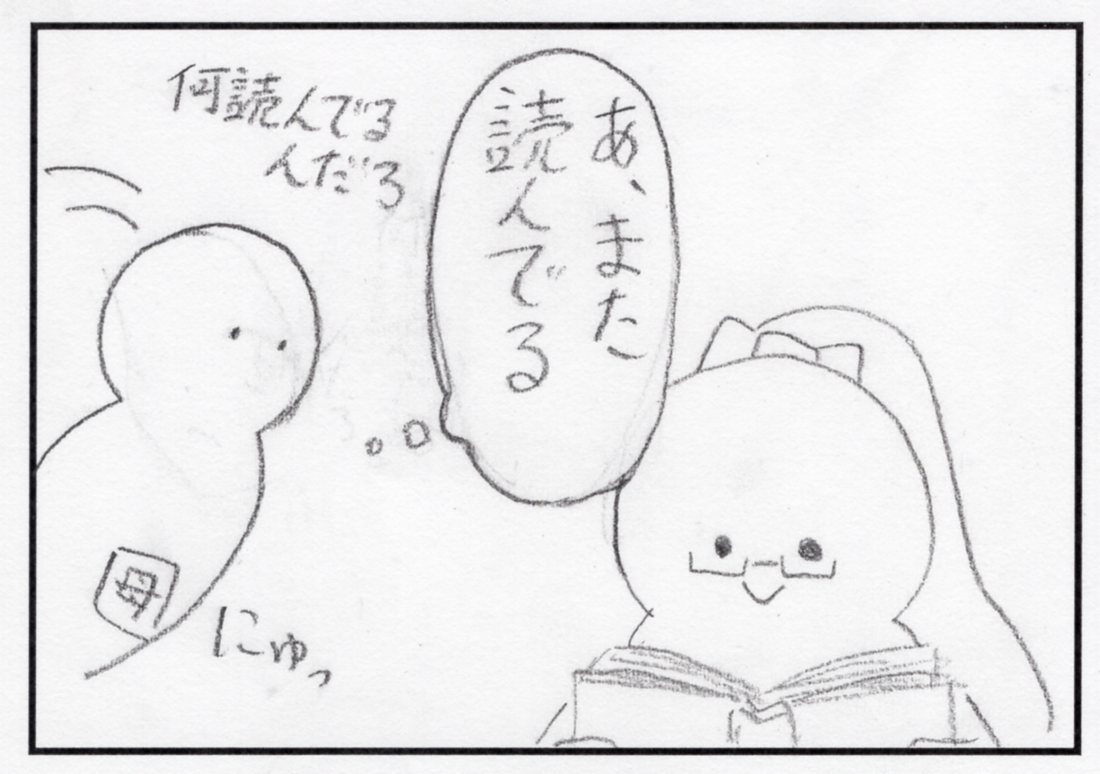 あ、また
読んでる
何読んでる
んだろ
母
にゅっ